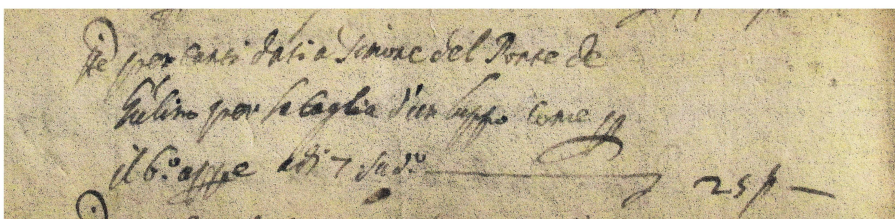 Ite per tanti dati a Simone del Ponte de
Giulino per la taglia d'un luppo come pp
il 6.º appe adi 7 sud.º 25 p —